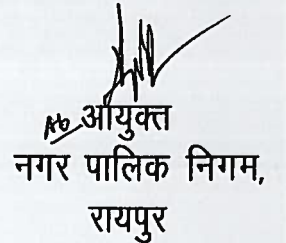 आयुक्त
नगर पालिक निगम,
रायपुर